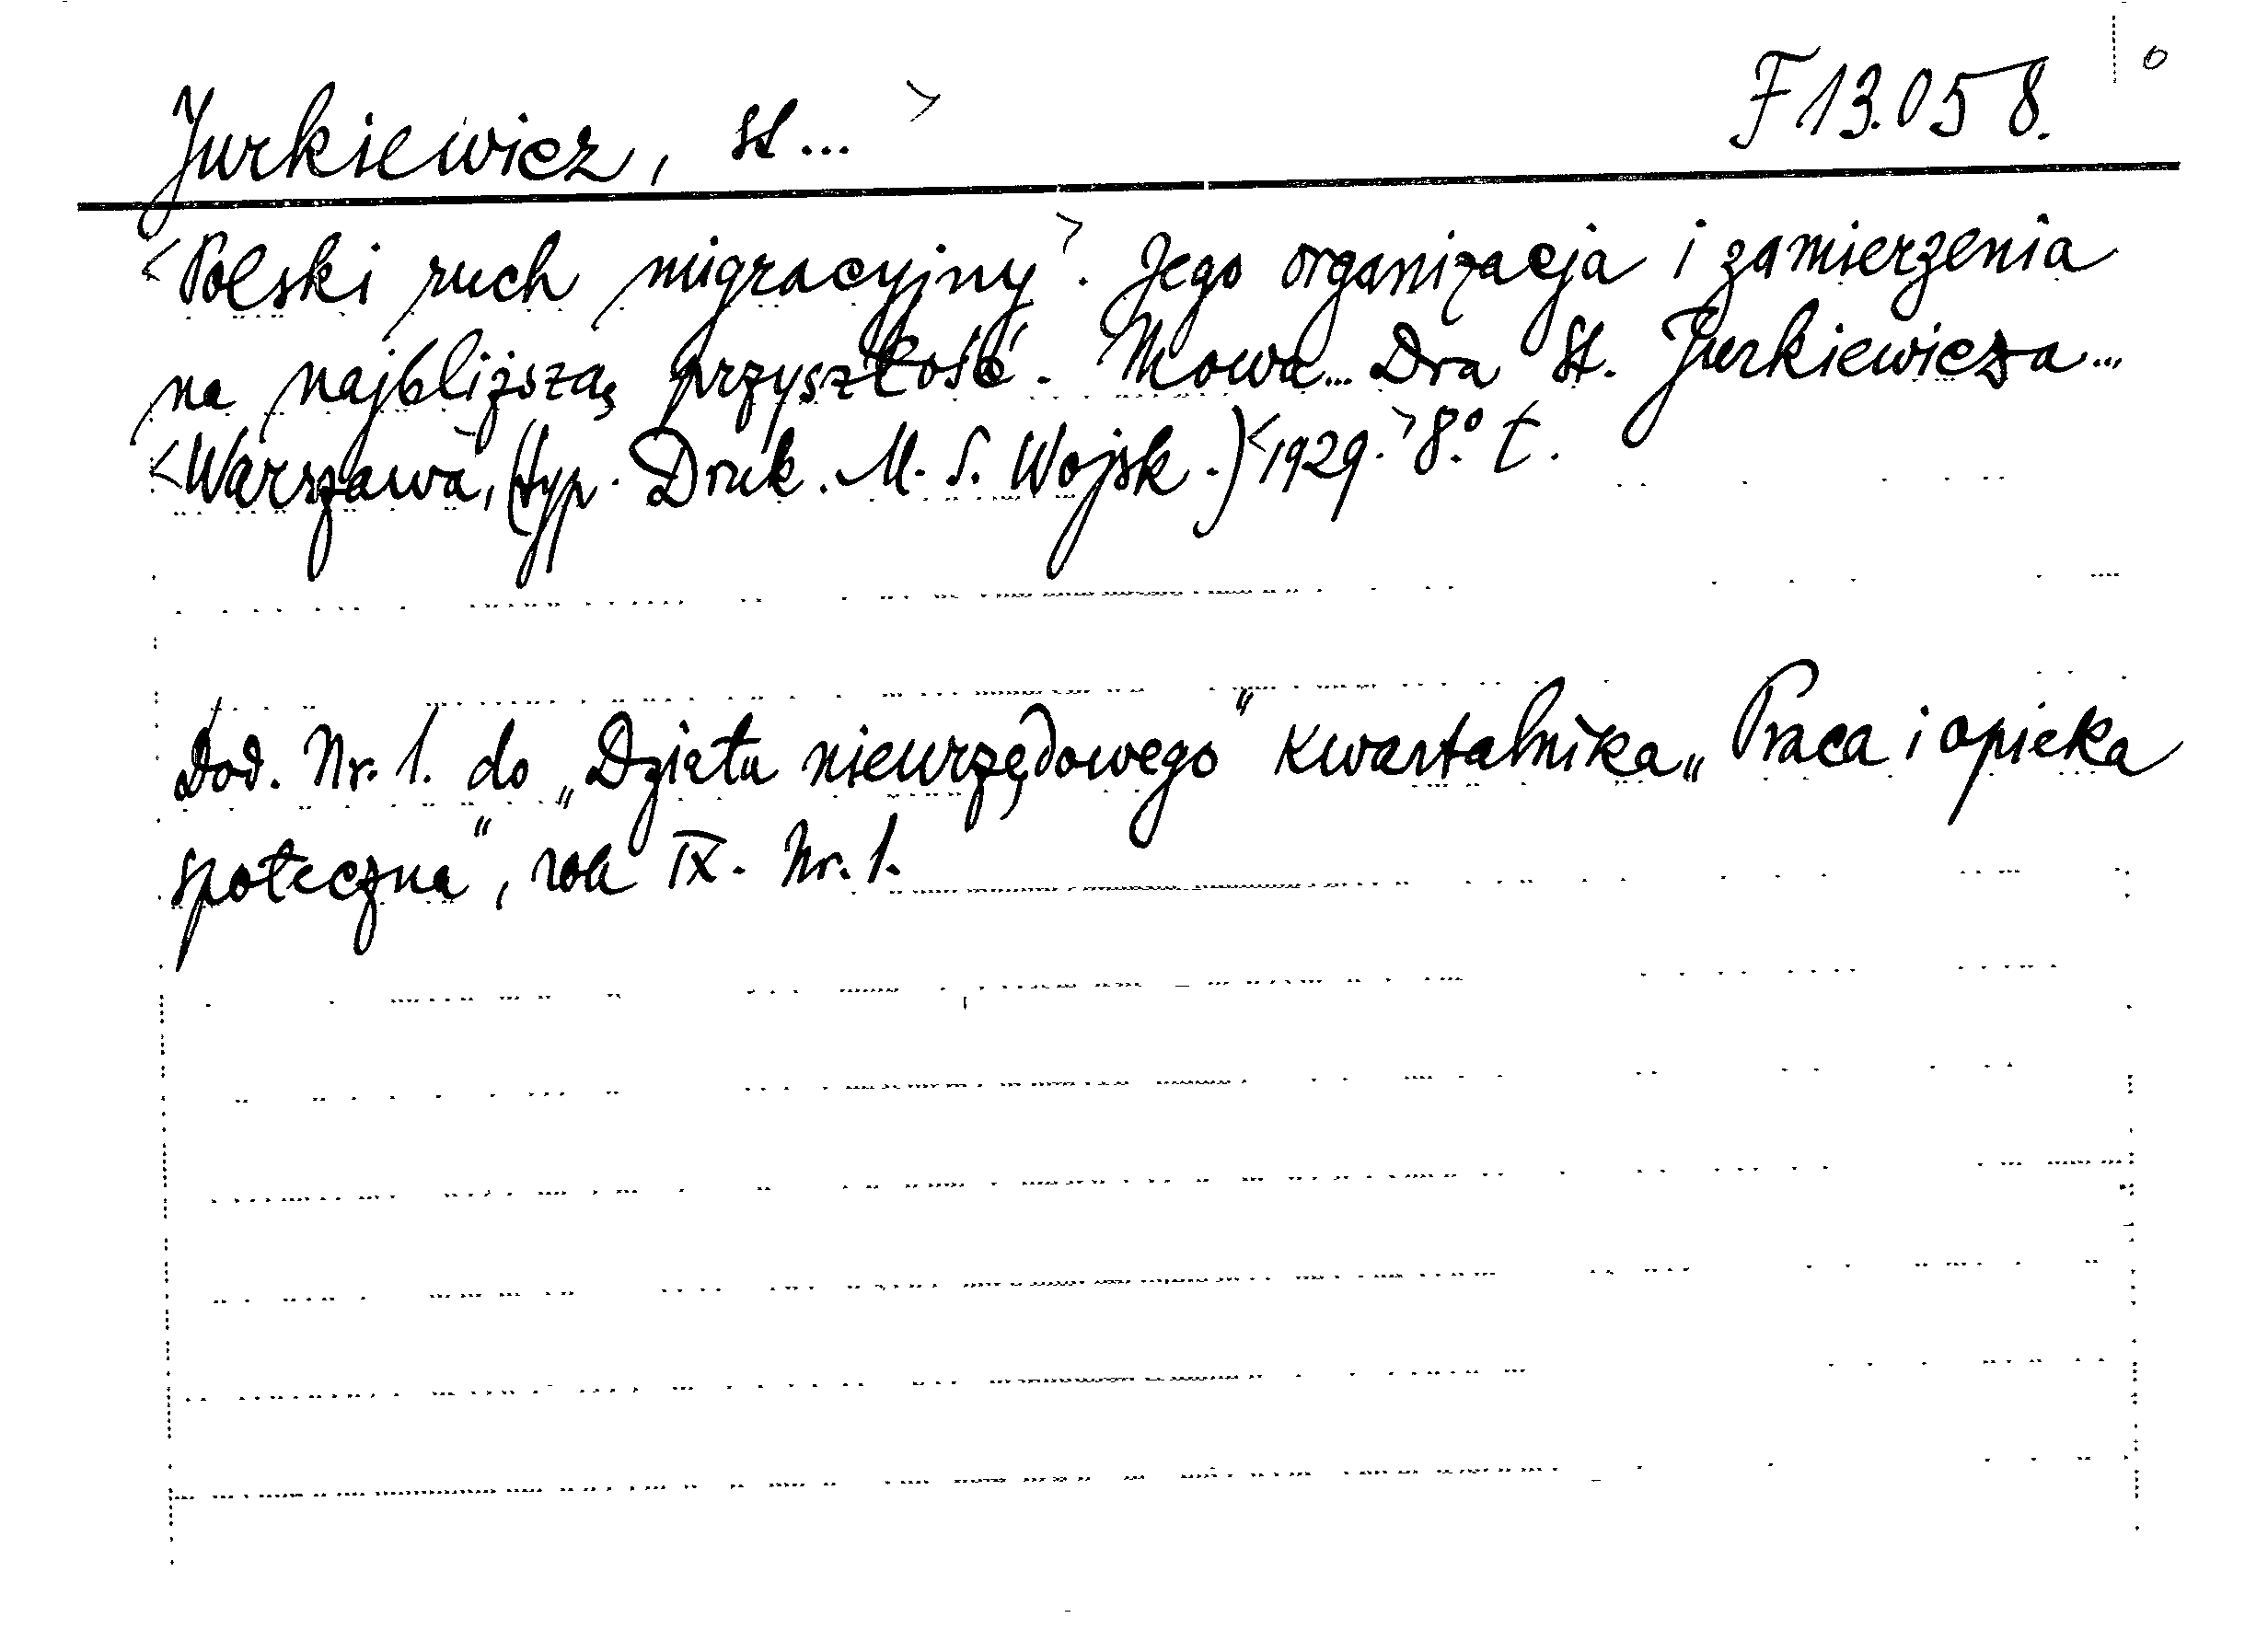 Jurkiewicz, St... > F 13.058. o
<Polski ruch migracyjny>. Jego organizacja i zamierzenia
na najbliższą przyszłość. Mowa... Dra St. Jurkiewicza...
<Warszawa, (typ. Druk. M. S. Wojsk.) <1929.> 8.° t.
Dod. Nr. 1. do „Działu nieurzędowego" kwartalnika „Praca i opieka
społeczna", rok IX. Nr. 1.